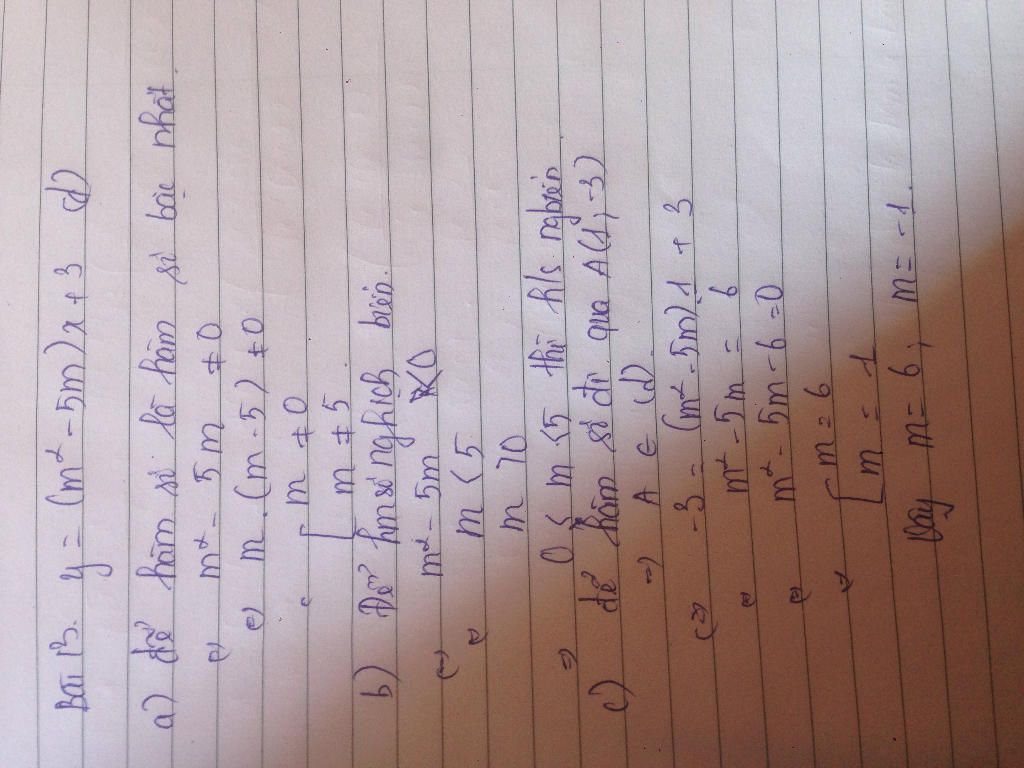 Bài 13. y = (m² - 5m)x + 3 (d)
a) để hàm số là hàm số bậc nhất.
⇔ m² - 5m ≠ 0
⇔ m.(m - 5) ≠ 0
[ m ≠ 0
m ≠ 5
b) Để hm số nghịch biến.
⇔ m² - 5m < 0
⇔ m < 5
m > 0
⇒ 0 < m < 5 thì h/s nghbiến
c) để hàm số đi qua A(1, -3)
⇒ A ∈ (d)
⇔ -3 = (m² - 5m)1 + 3
⇔ m² - 5m = 6
⇔ m² - 5m - 6 = 0
⇔ [ m = 6
m = -1
Vậy m = 6, m = -1.